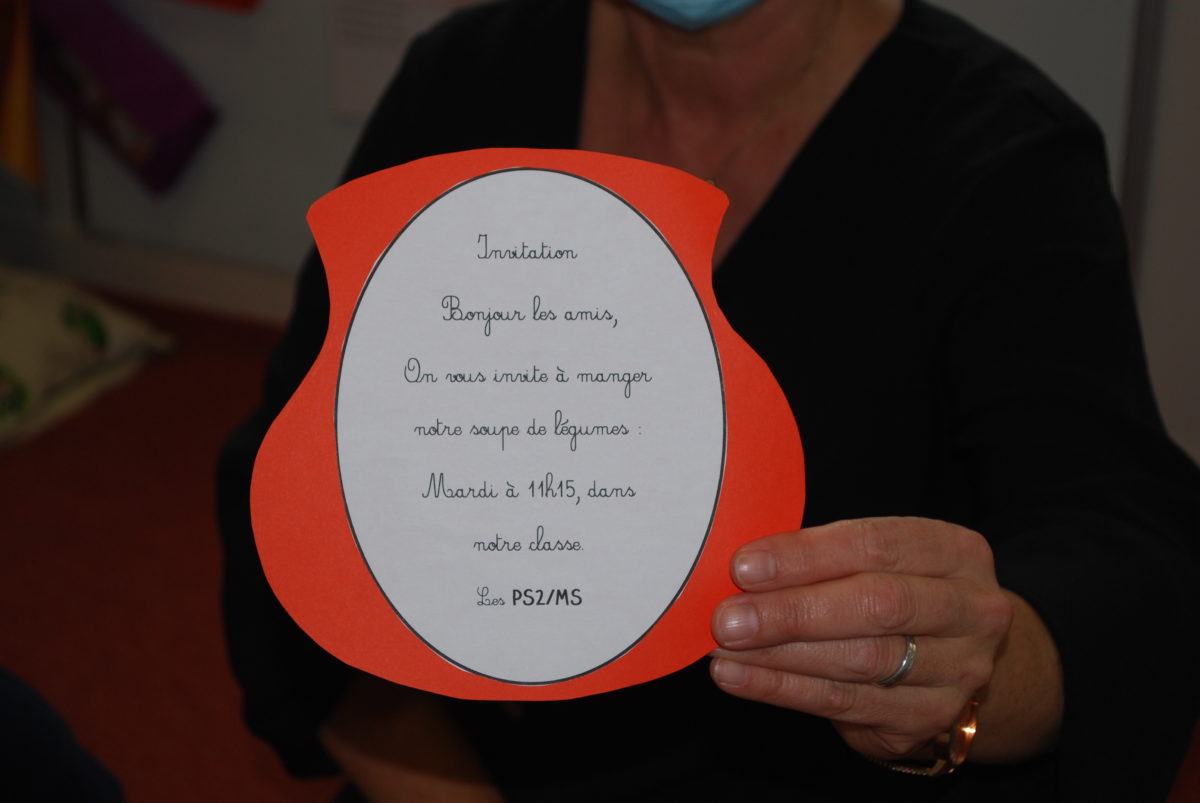 Invitation
Bonjour les amis,
On vous invite à manger
notre soupe de légumes :
Mardi à 11h15, dans
notre classe.
Les PS2/MS